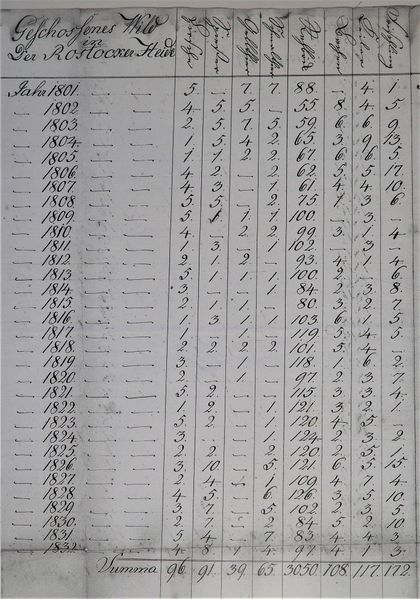 Geschossenes Wild
Der Rostocker Heide
Hirsche Spiesser Geltthier Schmalthier Keiler Frischling
Jahr 1801. 5. — 7. 7. 88. — 4. 1
— 1802. 4. 5. 5. — 55. 8. 4. 5
— 1803. 2. 5. 7. 5. 59. 6. 6. 9.
— 1804. 1. 5. 4. 2. 65. 3. 9. 13.
— 1805. 1. 1. 2. 2. 67. 6. 6. 5.
— 1806. 4. 2. — 2. 62. 5. 5. 17.
— 1807. 4. 3. — 1. 61. 4. 4. 10.
— 1808. 5. 5. — 2. 75. 1. 3. 6.
— 1809. 5. 1. 1. 1. 100. — 3. —
— 1810. 4. — 2. 2. 99. 3. 1. 4
— 1811. 1. 3. — 1. 102. — 3. —
— 1812. 2. 1. 2. — 93. 4. 1. 4
— 1813. 5. 1. 1. 1. 100. 2. — 6.
— 1814. 3. — — 1. 84. 2. 3. 8.
— 1815. 2. 1. 1. — 80. 3. 2. 7.
— 1816. 1. 3. 1. 1. 103. 6. 1. 5.
— 1817. 1. — — 1. 119. 5. 4. 5.
— 1818. 2. 2. 2. 2. 101. 5. 4. —
— 1819. 3. — — 1. 118. 1. 6. 2.
— 1820. 2. — — 1. 97. 2. 3. 7.
— 1821. 5. 2. — — 115. 3. 3. 4.
— 1822. 1. 2. — 1. 121. 3. 2. 1.
— 1823. 5. 2. — 1. 120. 4. 5. —
— 1824. 3. — — 1. 124. 2. 3. 2.
— 1825. 2. 2. — 2. 120. 2. 5. 1.
— 1826. 3. 10. — 5. 121. 6. 5. 15.
— 1827. 2. 4. — 1. 109. 4. 7. 4
— 1828. 4. 5. — 6. 126. 3. 5. 10.
— 1829. 3. 7. — 5. 102. 2. 3. 5.
— 1830. 2. 7. — 2. 84. 5. 2. 10.
— 1831. 5. 4. — 7. 83. 4. 4. 3
— 1832. 4. 8. 1. 4. 97. 4. 1. 3.
Summa 96. 91. 39. 65. 3050. 108. 117. 172.